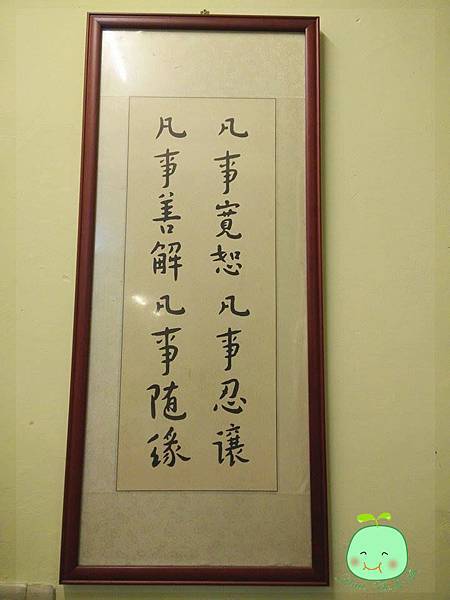 凡事寬恕凡事忍讓
凡事善解凡事随緣